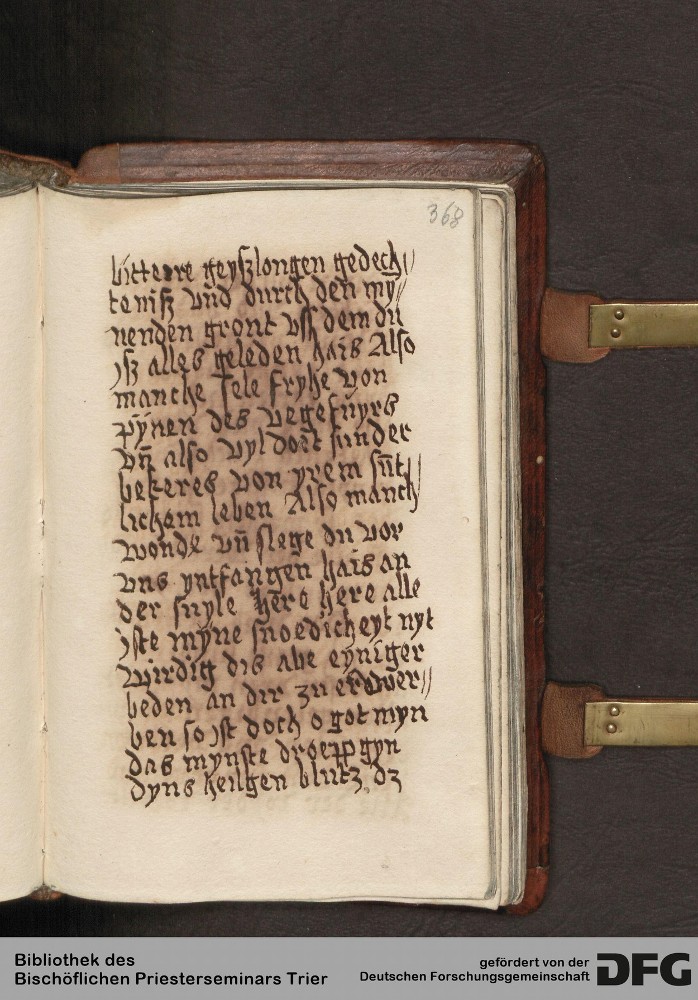 368
bitterre geyszlongen gedech//
tenisz vnd durch den my//
nenden gront vsz dem du
jsz alles geleden hais Also
manche sele fryhe von
pynen des vegefuyrs
vn̄ also vyl doet sunder
bekeres von yrem sūt//
licham leben Also manch//
wonde vn̄ slege du vor
vns yntfangen hais an
der suyle here here alle
jste myne snoedicheyt nyt
wirdig dis abe eyniger
beden an dir zu erwer//
ben so jst doch o got myn
das mynste droeppgyn
dyns heilgen blutz dz
Bibliothek des
Bischöflichen Priesterseminars Trier
gefördert von der
Deutschen Forschungsgemeinschaft
DFG